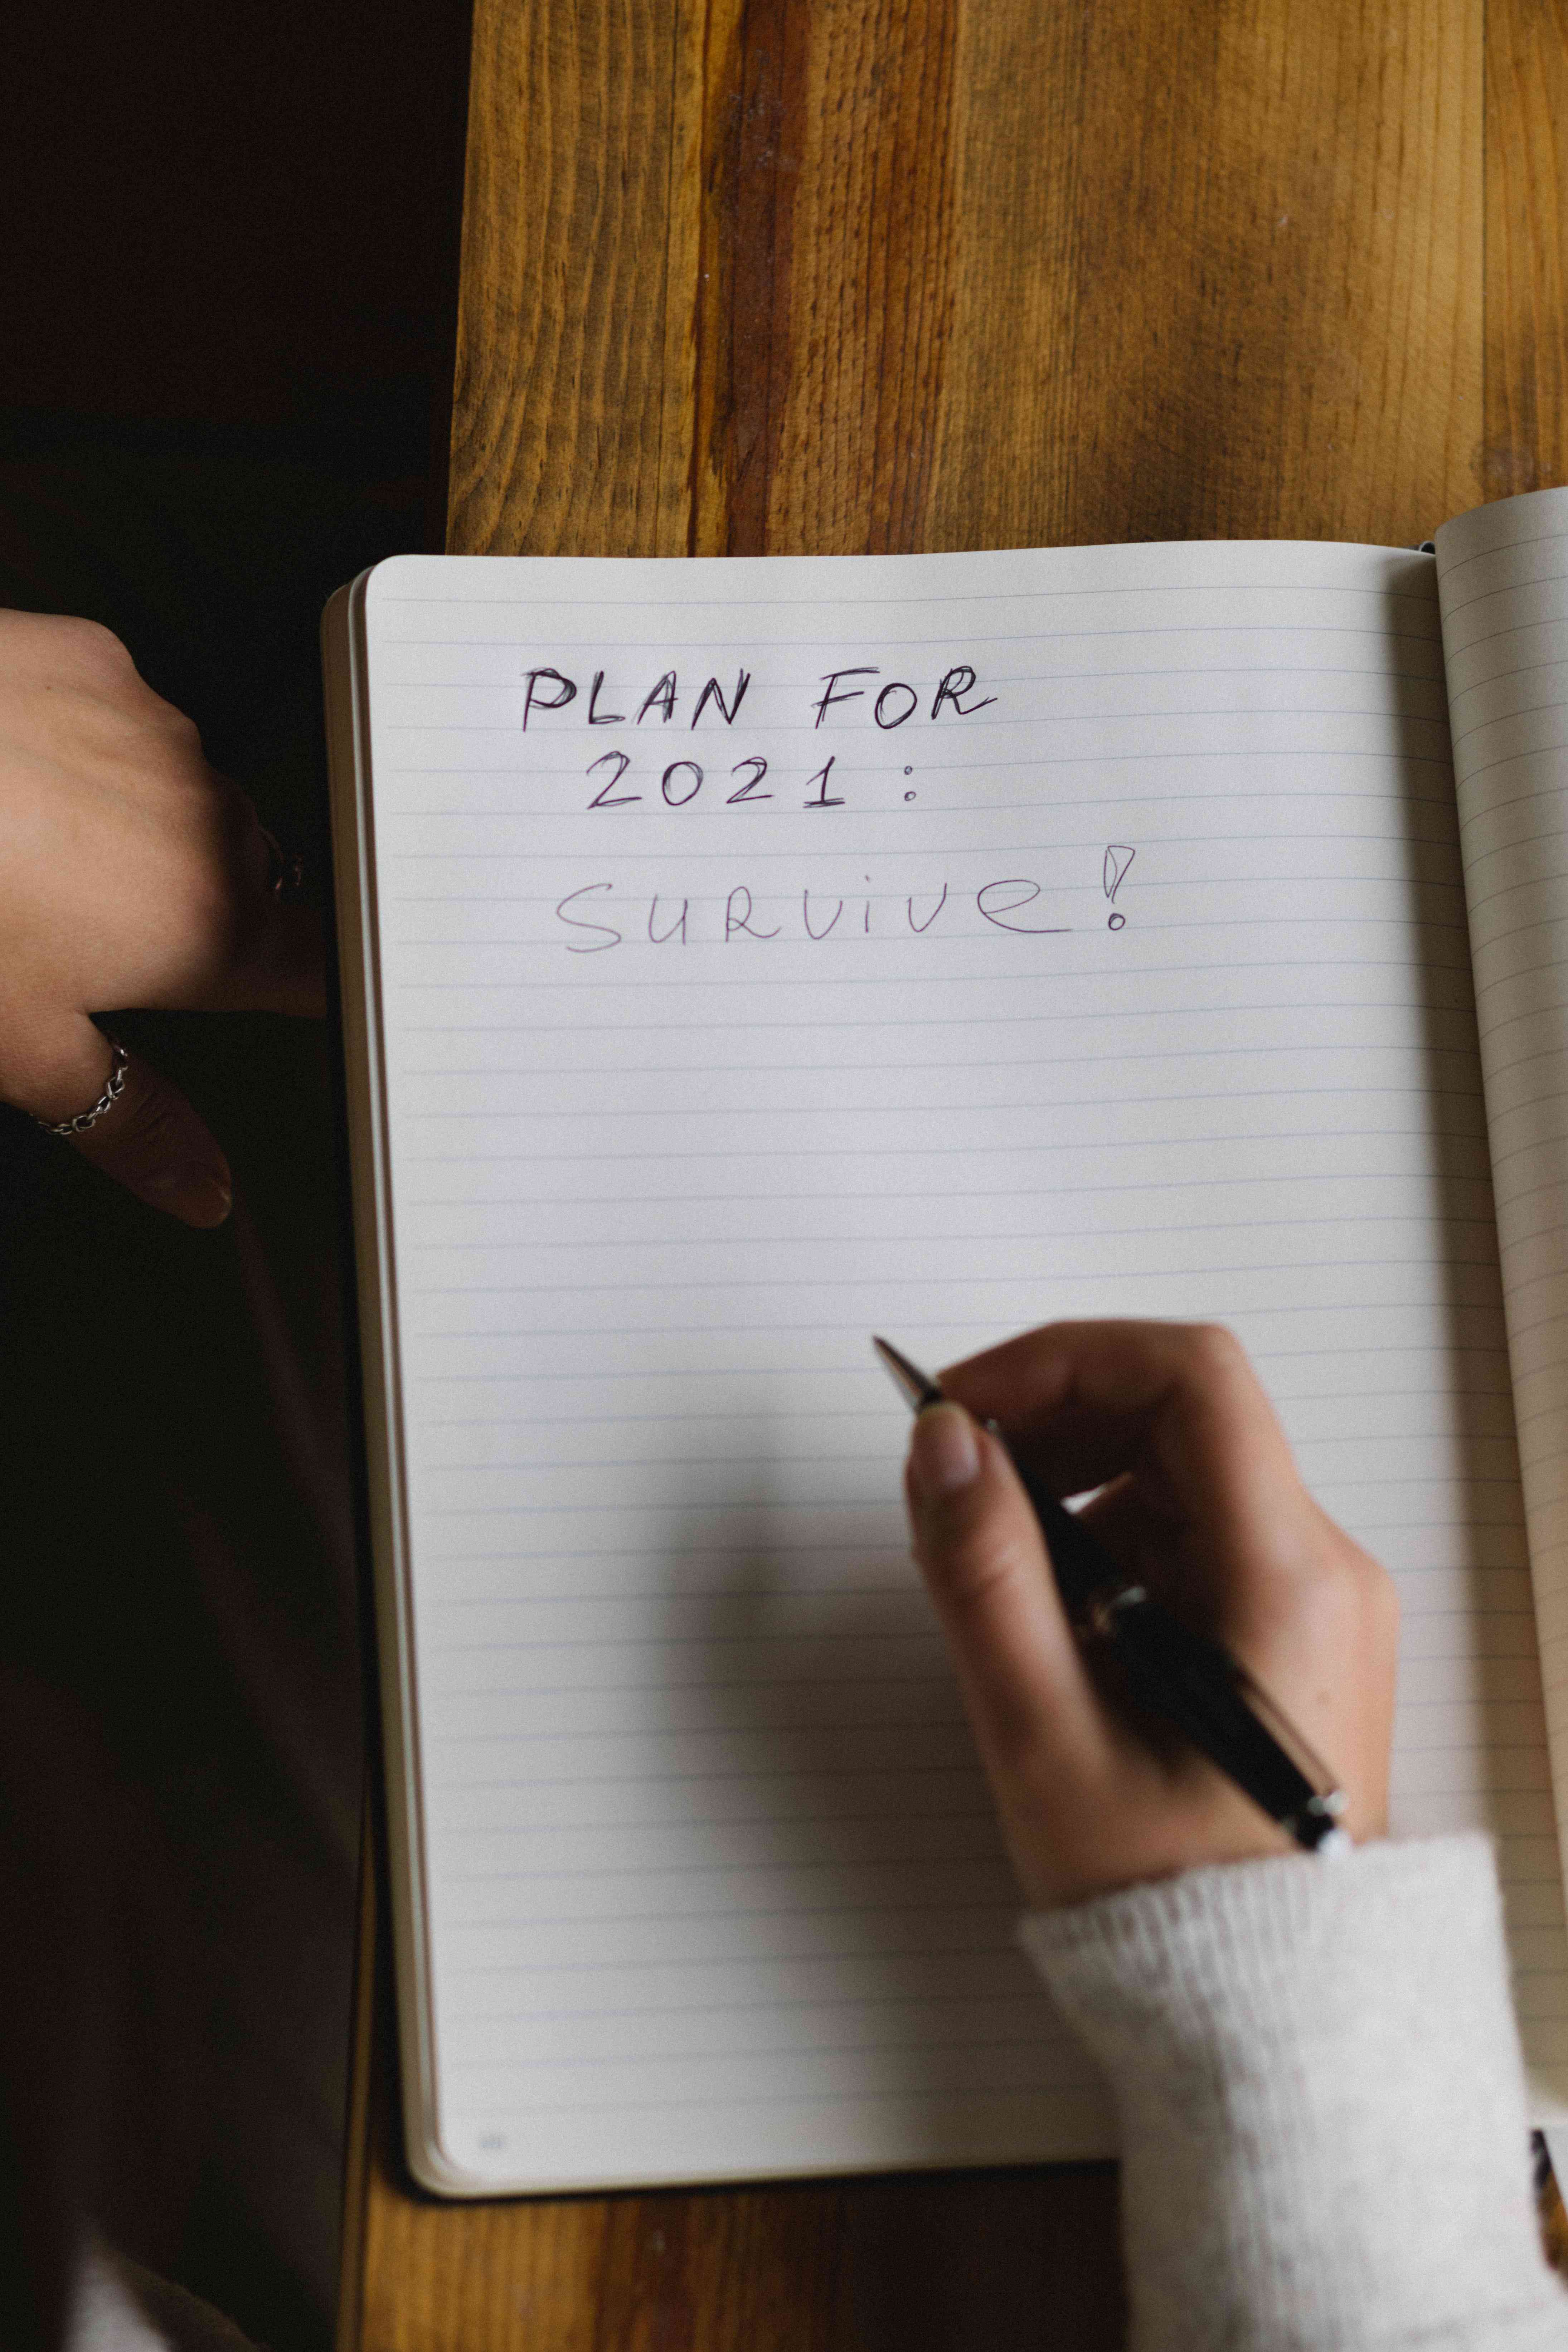 PLAN FOR
2021:
SURViVe!